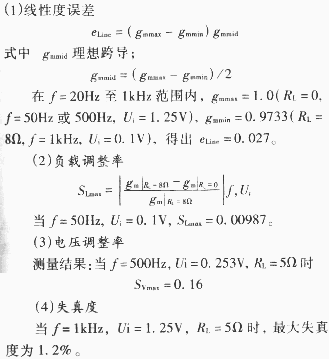 (1)线性度误差
eLine = (gmmax − gmmin) gmmid
式中 gmmid 理想跨导;
gmmid = (gmmax − gmmin)/2
在 f = 20Hz 至 1kHz 范围内, gmmax = 1.0(RL = 0,
f = 50Hz 或 500Hz, Ui = 1.25V), gmmin = 0.9733(RL =
8Ω, f = 1kHz, Ui = 0.1V), 得出 eLine = 0.027。
(2)负载调整率
SLmax = | (gm|RL=8Ω − gm|RL=0) / gm|RL=8Ω | f, Ui
当 f = 50Hz, Ui = 0.1V, SLmax = 0.00987。
(3)电压调整率
测量结果:当 f = 500Hz, Ui = 0.253V, RL = 5Ω 时
SVmax = 0.16
(4)失真度
当 f = 1kHz, Ui = 1.25V, RL = 5Ω 时, 最大失真
度为 1.2%。